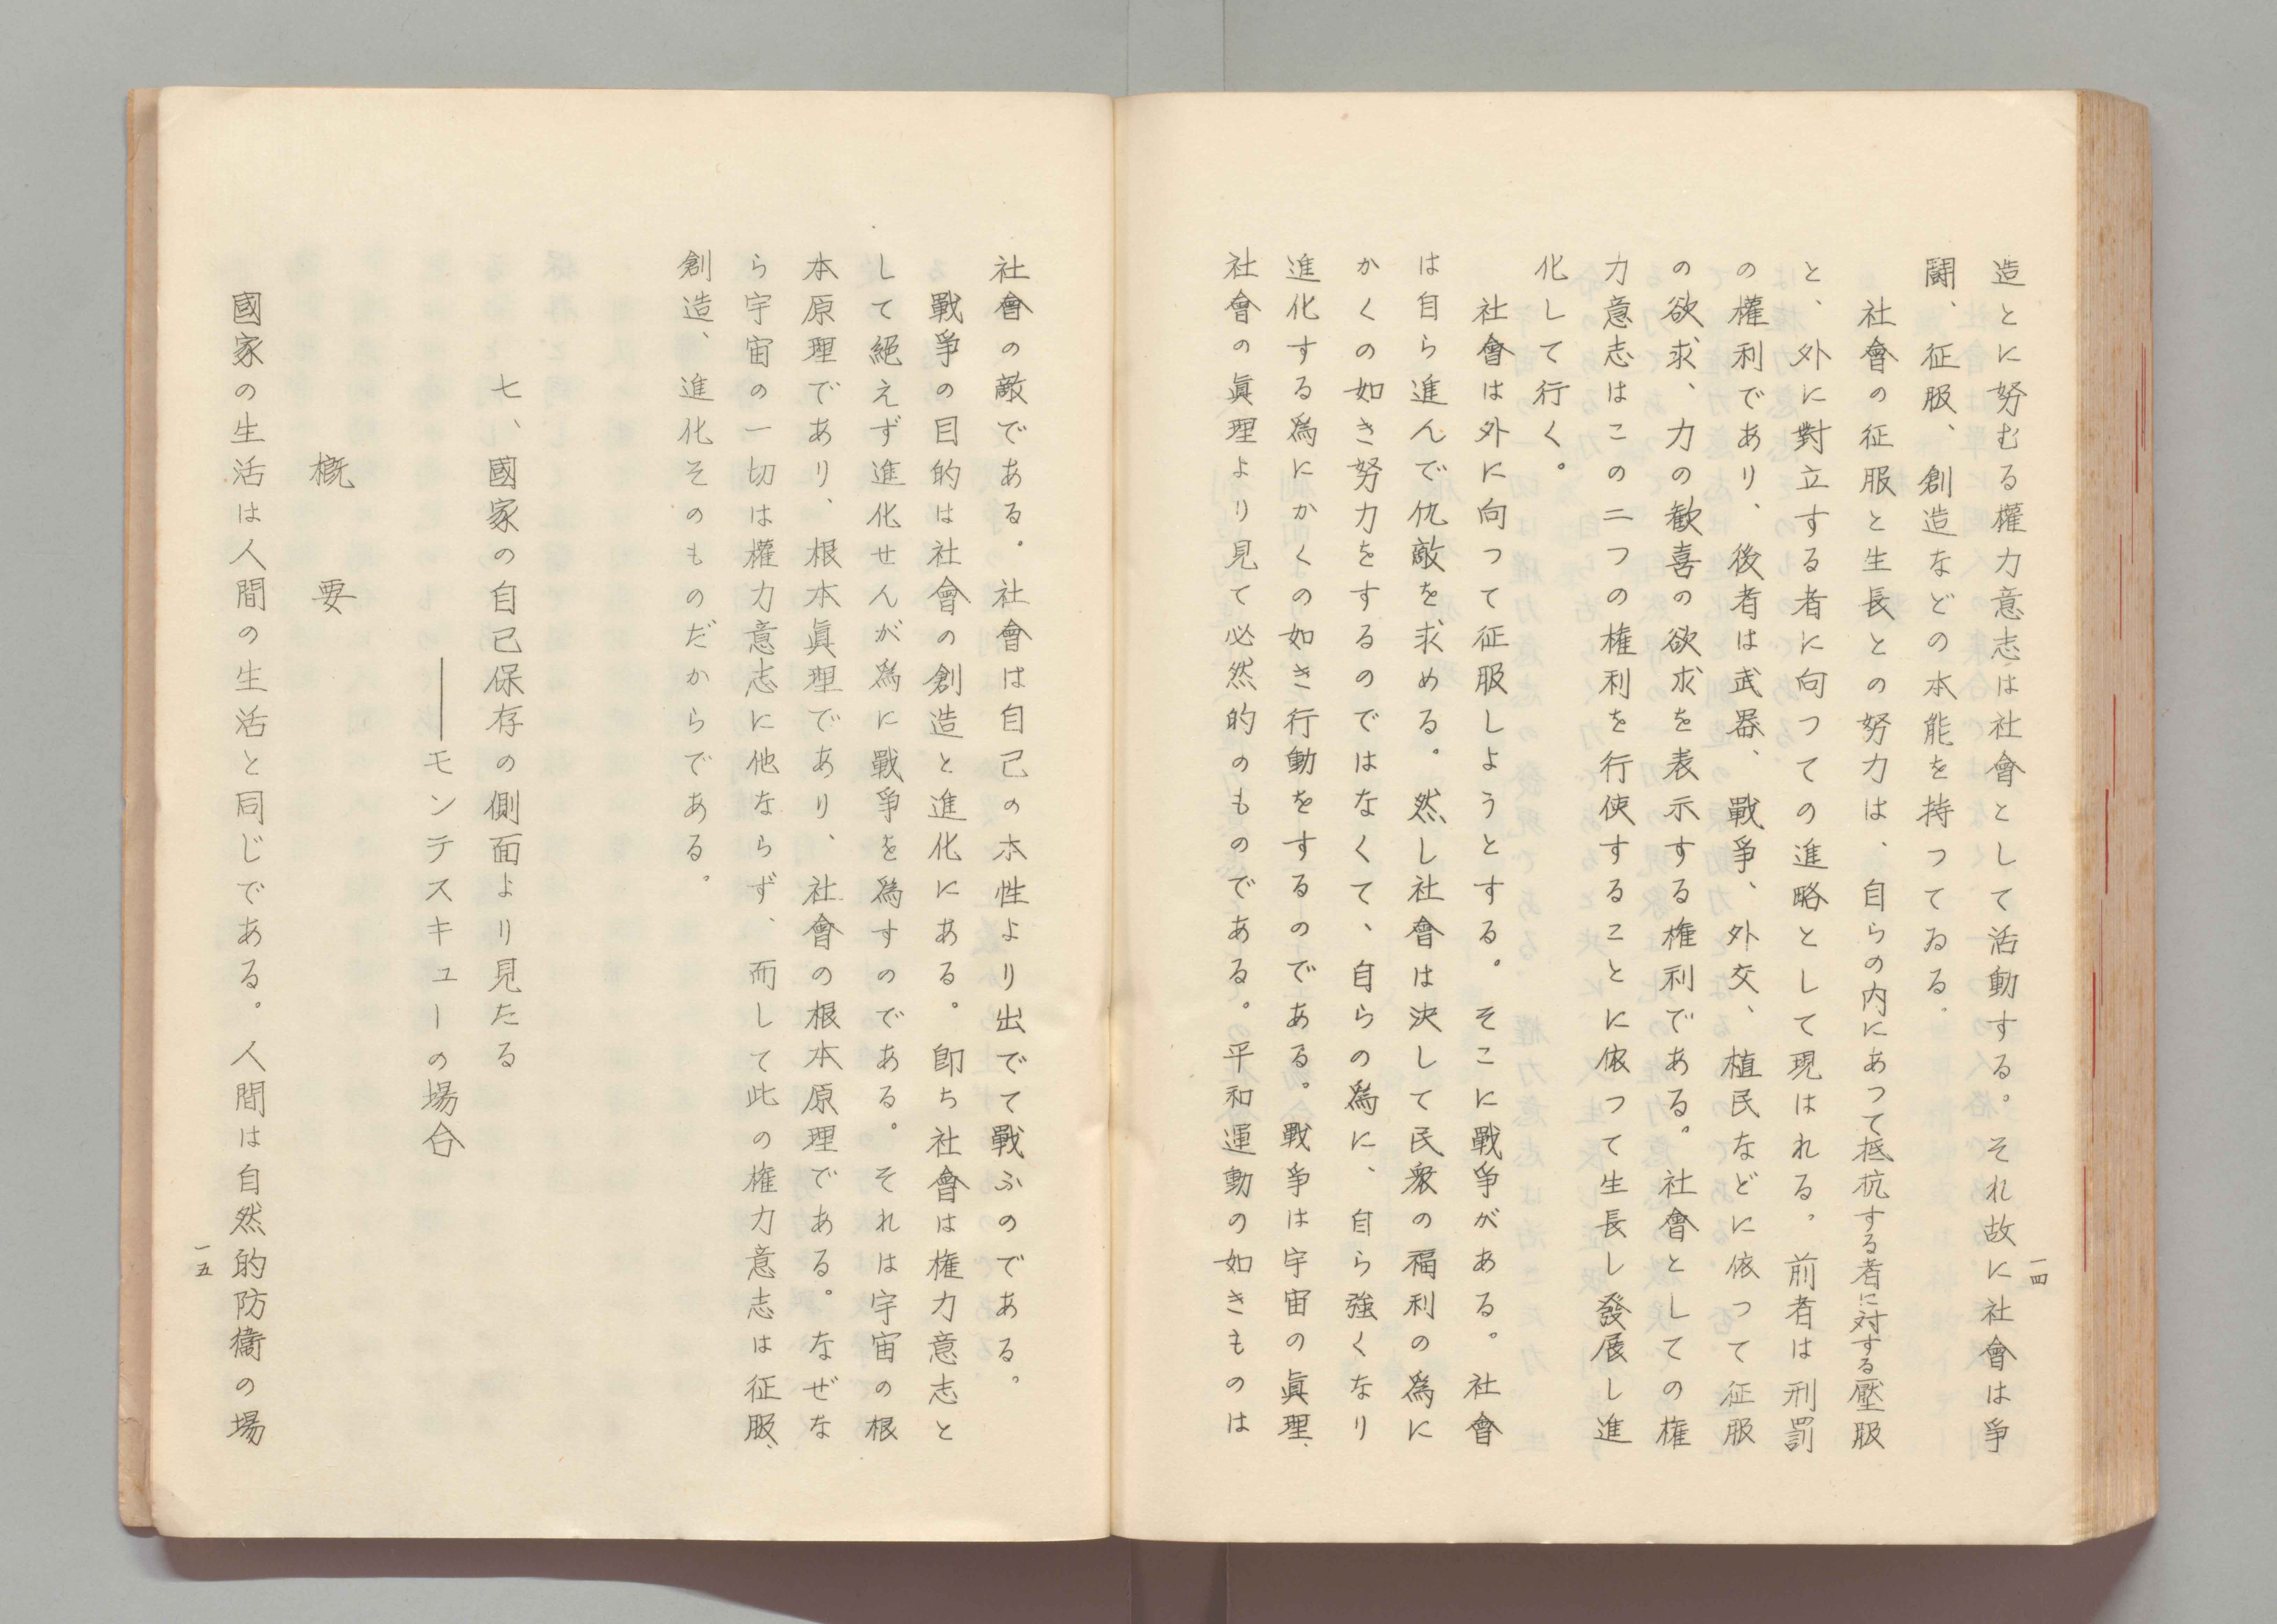 造とに努むる權力意志は社會として活動する。それ故に社會は爭
鬪、征服、創造などの本能を持つてゐる.
社會の征服と生長との努力は、自らの内にあつて抵抗する者に対する壓服
と、外に對立する者に向つての進略として現はれる。前者は刑罰
の權利であり、後者は武器、戰爭、外交、植民などに依つて征服
の欲求、力の歓喜の欲求を表示する権利である。社會としての権
力意志はこの二つの権利を行使することに依つて生長し發展し進
化して行く。
社會は外に向つて征服しようとする。そこに戰爭がある。社會
は自ら進んで仇敵を求める。然し社會は決して民衆の福利の爲に
かくの如き努力をするのではなくて、自らの爲に、自ら強くなり
進化する爲にかくの如き行動をするのである。戰爭は宇宙の眞理、
社會の眞理より見て必然的のものである。平和運動の如きものは
一四
社會の敵である.社會は自己の本性より出でて戰ふのである。
戰爭の目的は社會の創造と進化にある。卽ち社會は権力意志と
して絕えず進化せんが爲に戰爭を爲すのである。それは宇宙の根
本原理であり、根本眞理であり、社會の根本原理である。なぜな
ら宇宙の一切は權力意志に他ならず、而して此の権力意志は征服、
創造、進化そのものだからである。
七、國家の自己保存の側面より見たる
——モンテスキューの場合
概要
國家の生活は人間の生活と同じである。人間は自然的防衞の場
一五